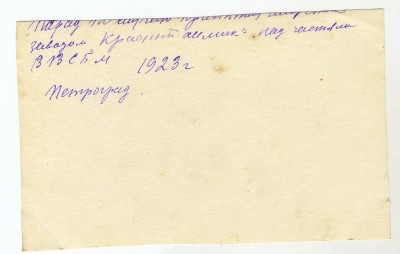 Парад по случаю принятия шефства
заводом Красный химик над частями
В В С Б М 1923 г
Петроград.